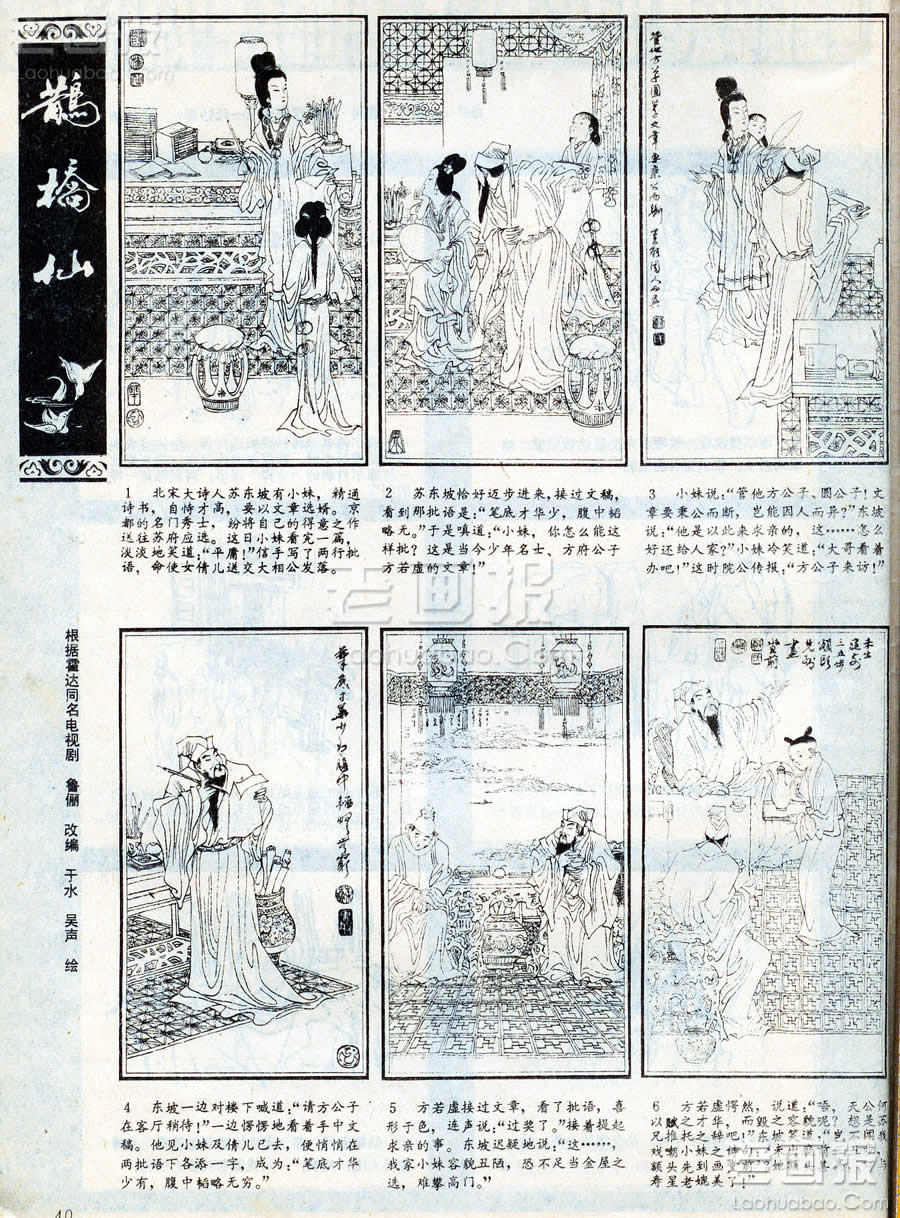 鵲橋仙
1　北宋大诗人苏东坡有小妹，精通
诗书，自恃才高，要以文章选婿。京
都的名门秀士，纷将自己的得意之作
送往苏府应选。这日小妹看完一篇，
淡淡地笑道：“平庸！”信手写了两行批
语，命使女倩儿送交大相公发落。
2　苏东坡恰好迈步进来，接过文稿，
看到那批语是：“笔底才华少，腹中韬
略无。”于是嗔道：“小妹，你怎么能这
样批？这是当今少年名士、方府公子
方若虚的文章！”
3　小妹说：“管他方公子、圆公子！文
章要秉公而断，岂能因人而异？”东坡
说：“他是以此来求亲的，这……怎么
好还给人家？”小妹冷笑道：“大哥看着
办吧！”这时院公传报：“方公子来访！”
根据霍达同名电视剧　鲁俪　改编　于水　吴声　绘
4　东坡一边对楼下喊道：“请方公子
在客厅稍待！”一边愣愣地看着手中文
稿。他见小妹及倩儿已去，便悄悄在
两批语下各添一字，成为：“笔底才华
少有，腹中韬略无穷。”
5　方若虚接过文章，看了批语，喜
形于色，连声说：“过奖了。”接着提起
求亲的事。东坡迟疑地说：“这……，
我家小妹容貌丑陋，恐不足当金屋之
选，难攀高门。”
6　方若虚愕然，说道：“唔，天公何
以赋之才华，而毁之容貌呢？想是苏
兄推托之辞吧！”东坡笑道：“岂不闻我
戏嘲小妹之
额头先到画
寿星老媲美了！”
40
老画报
Laohuabao.com
老画报
Laohuabao.com
老画报
Laohuabao.Com